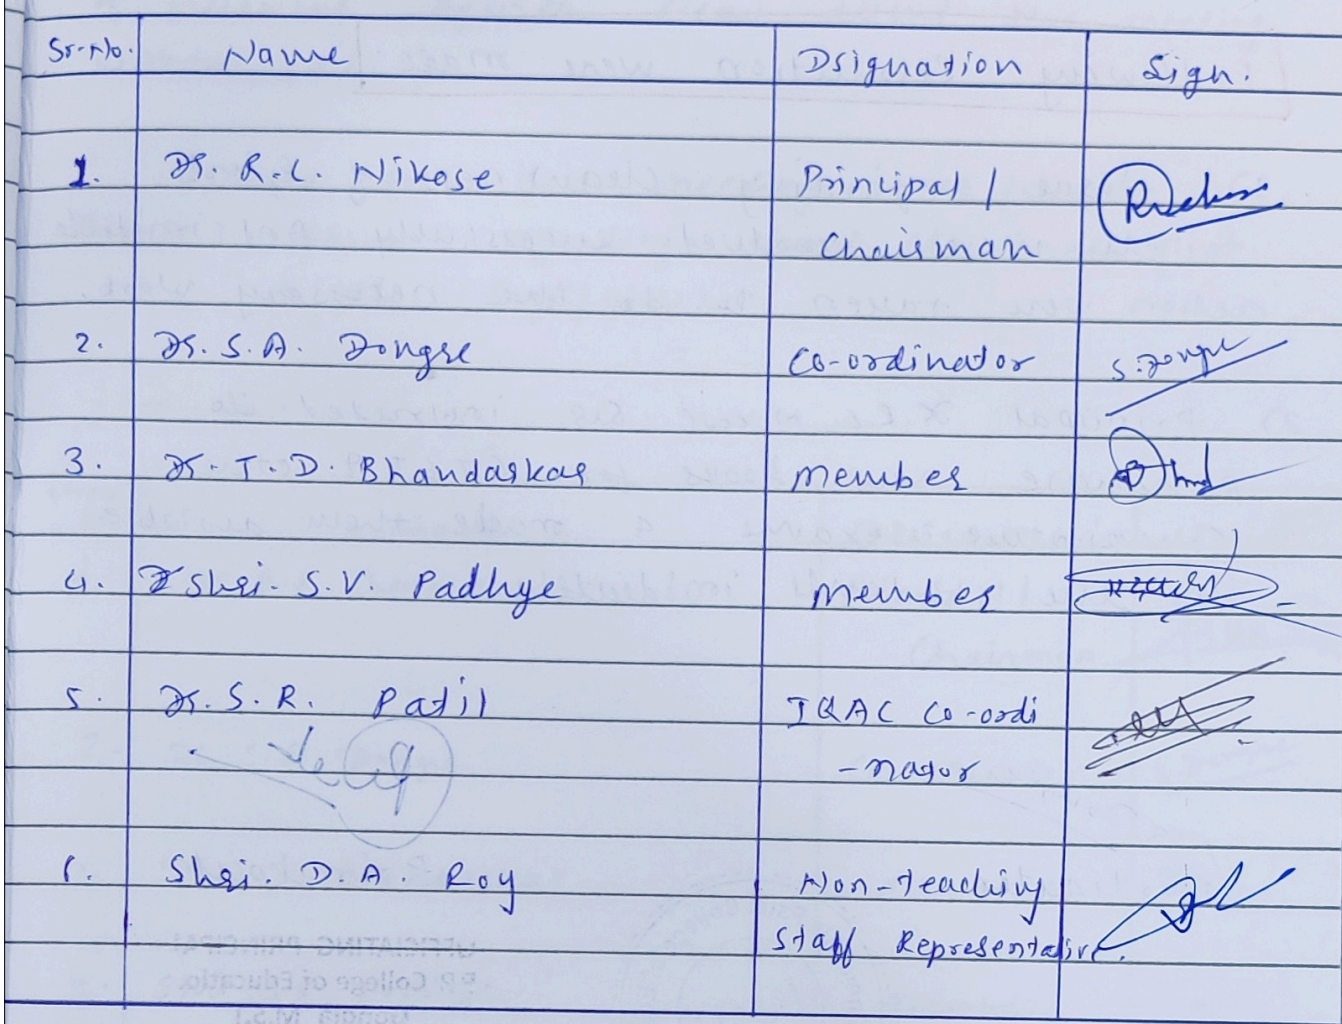 Sr.No. Name Dsignation Sign.
1. Dr. R.C. Nikose Principal /
Chairman
2. Dr. S.A. Dongre Co-ordinator S.Dongre
3. Dr. T.D. Bhandarkar Member
4. Shri. S.V. Padhye Member
5. Dr. S.R. Patil IQAC Co-ordi
-nator
6. Shri. D.A. Roy Non-teaching
Staff Representative.